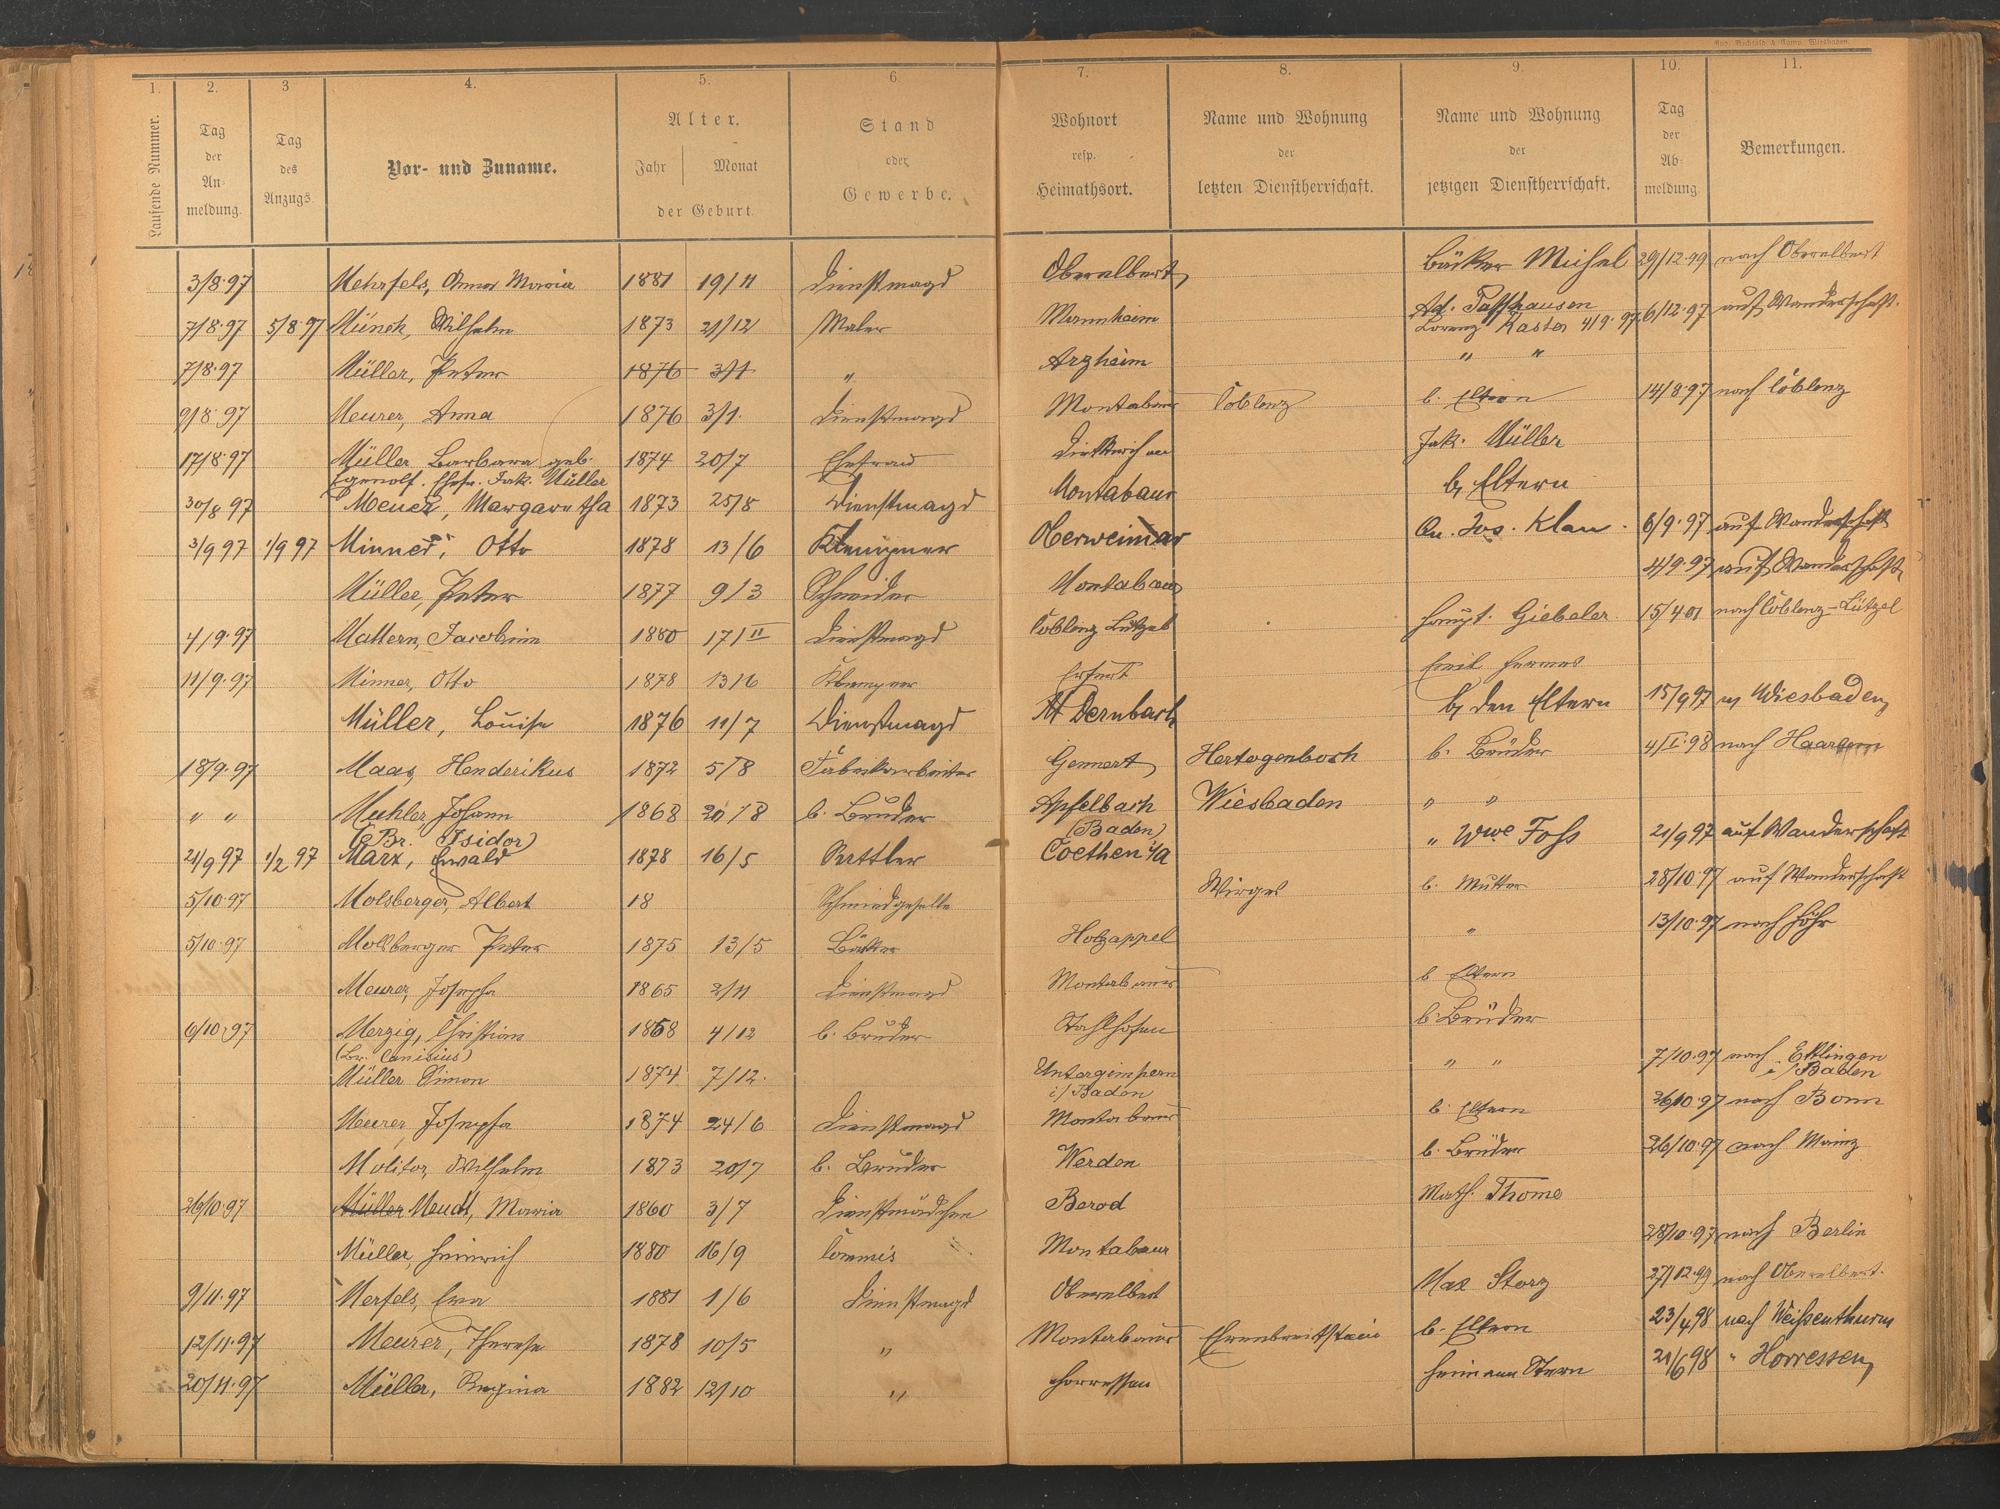 1. 2. 3 4. 5. 6 7. 8. 9. 10. 11.
Laufende Nummer. Tag der An- meldung. Tag des Anzugs. Vor- und Zuname. Alter. Jahr Monat der Geburt. Stand oder Gewerbe. Wohnort resp. Heimathsort. Name und Wohnung der letzten Dienstherrschaft. Name und Wohnung der jetzigen Dienstherrschaft. Tag der Ab- meldung. Bemerkungen.
3/8.97 Mehrfels, Anna Maria 1881 19/11 Dienstmagd Oberelbert Bäcker Michel 29/12.99 nach Oberelbert
7/8.97 5/8.97 Münch, Wilhelm 1873 21/12 Maler Mannheim Ad. Lorenz Kaster 4/9.97 6/12.97 auf Wanderschaft.
7/8.97 Müller, Peter 1876 3/1 " Arzheim " "
9/8.97 Meurer, Anna 1876 3/1. Dienstmagd Montabaur Coblenz b. Eltern 14/8.97 nach Coblenz
17/8.97 Müller, Barbara geb. 1874 20/7 Ehefrau Jak. Müller
Egenolf. Ehefr. Jak. Müller
30/8 97 Meuer, Margaretha 1873 25/8 Dienstmagd Montabaur b. Eltern
3/9 97 1/9 97 Minner, Otto 1878 13/6 Klempner Oberweimar An. Jos. Klau. 6/9.97 auf Wanderschaft
Müller, Peter 1877 9/3 Schneider Montabaur 4/9.97 auf Wanderschaft
4/9.97 Mattern, Jacobine 1880 17/II Dienstmagd Coblenz Lützel Haupt. Giebeler 15/4 01 nach Coblenz-Lützel
11/9.97 Minner, Otto 1878 13/6 Klempner Erfurt Emil Hermes
Müller, Louise 1876 11/7 Dienstmagd Dernbach b. den Eltern 15/9 97 n. Wiesbaden
18/9.97 Maas, Henderikus 1872 5/8 Fabrikarbeiter Gemert Hertogenbosch b. Brüder 4/I.98 nach Haarlem
" " Muhler, Johann 1868 20/8 b. Bruder Apfelbach Wiesbaden " "
(Br. Isidor) (Baden)
21/9 97 1/2 97 Marx, Ewald 1878 16/5 Sattler Coethen i/A " Wwe Fohs 21/9 97 auf Wanderschaft
5/10.97 Molsberger, Albert 18 Schmiedgeselle Wirges b. Mutter 28/10.97 auf Wanderschaft
5/10.97 Mollberger Peter 1875 13/5 Bäcker Holzappel " 13/10.97 nach Höhr
Meurer, Josepha 1865 2/11 Dienstmagd Montabaur b. Eltern
6/10.97 Merzig, Christian 1868 4/12 b. Bruder Stahlhofen b. Brüder
(Br. Canisius)
Müller Simon 1874 7/12. Untergimpern " " 7/10.97 nach Ettlingen
i/Baden i/Baden
Meurer, Josepha 1874 24/6 Dienstmagd Montabaur b. Eltern 26/10.97 nach Bonn
Molitor, Wilhelm 1873 20/7 b. Bruder Werden b. Brüder 26/10.97 nach Mainz
26/10.97 Müller Meudt, Maria 1860 3/7 Dienstmädchen Berod Math. Thome
Müller, Heinrich 1880 16/9 Commis Montabaur 28/10.97 nach Berlin
9/11.97 Merfels, Eva 1881 1/6 Dienstmagd Oberelbert Max Storz 27/12.99 nach Oberelbert.
12/11.97 Meurer, Therese 1878 10/5 " Montabaur Ehrenbreitstein b. Eltern 23/4 98 nach Weißenthurm
20/11.97 Müller, Regina 1882 12/10 " Horressen Heimann Stern 21/6 98 " Horressen